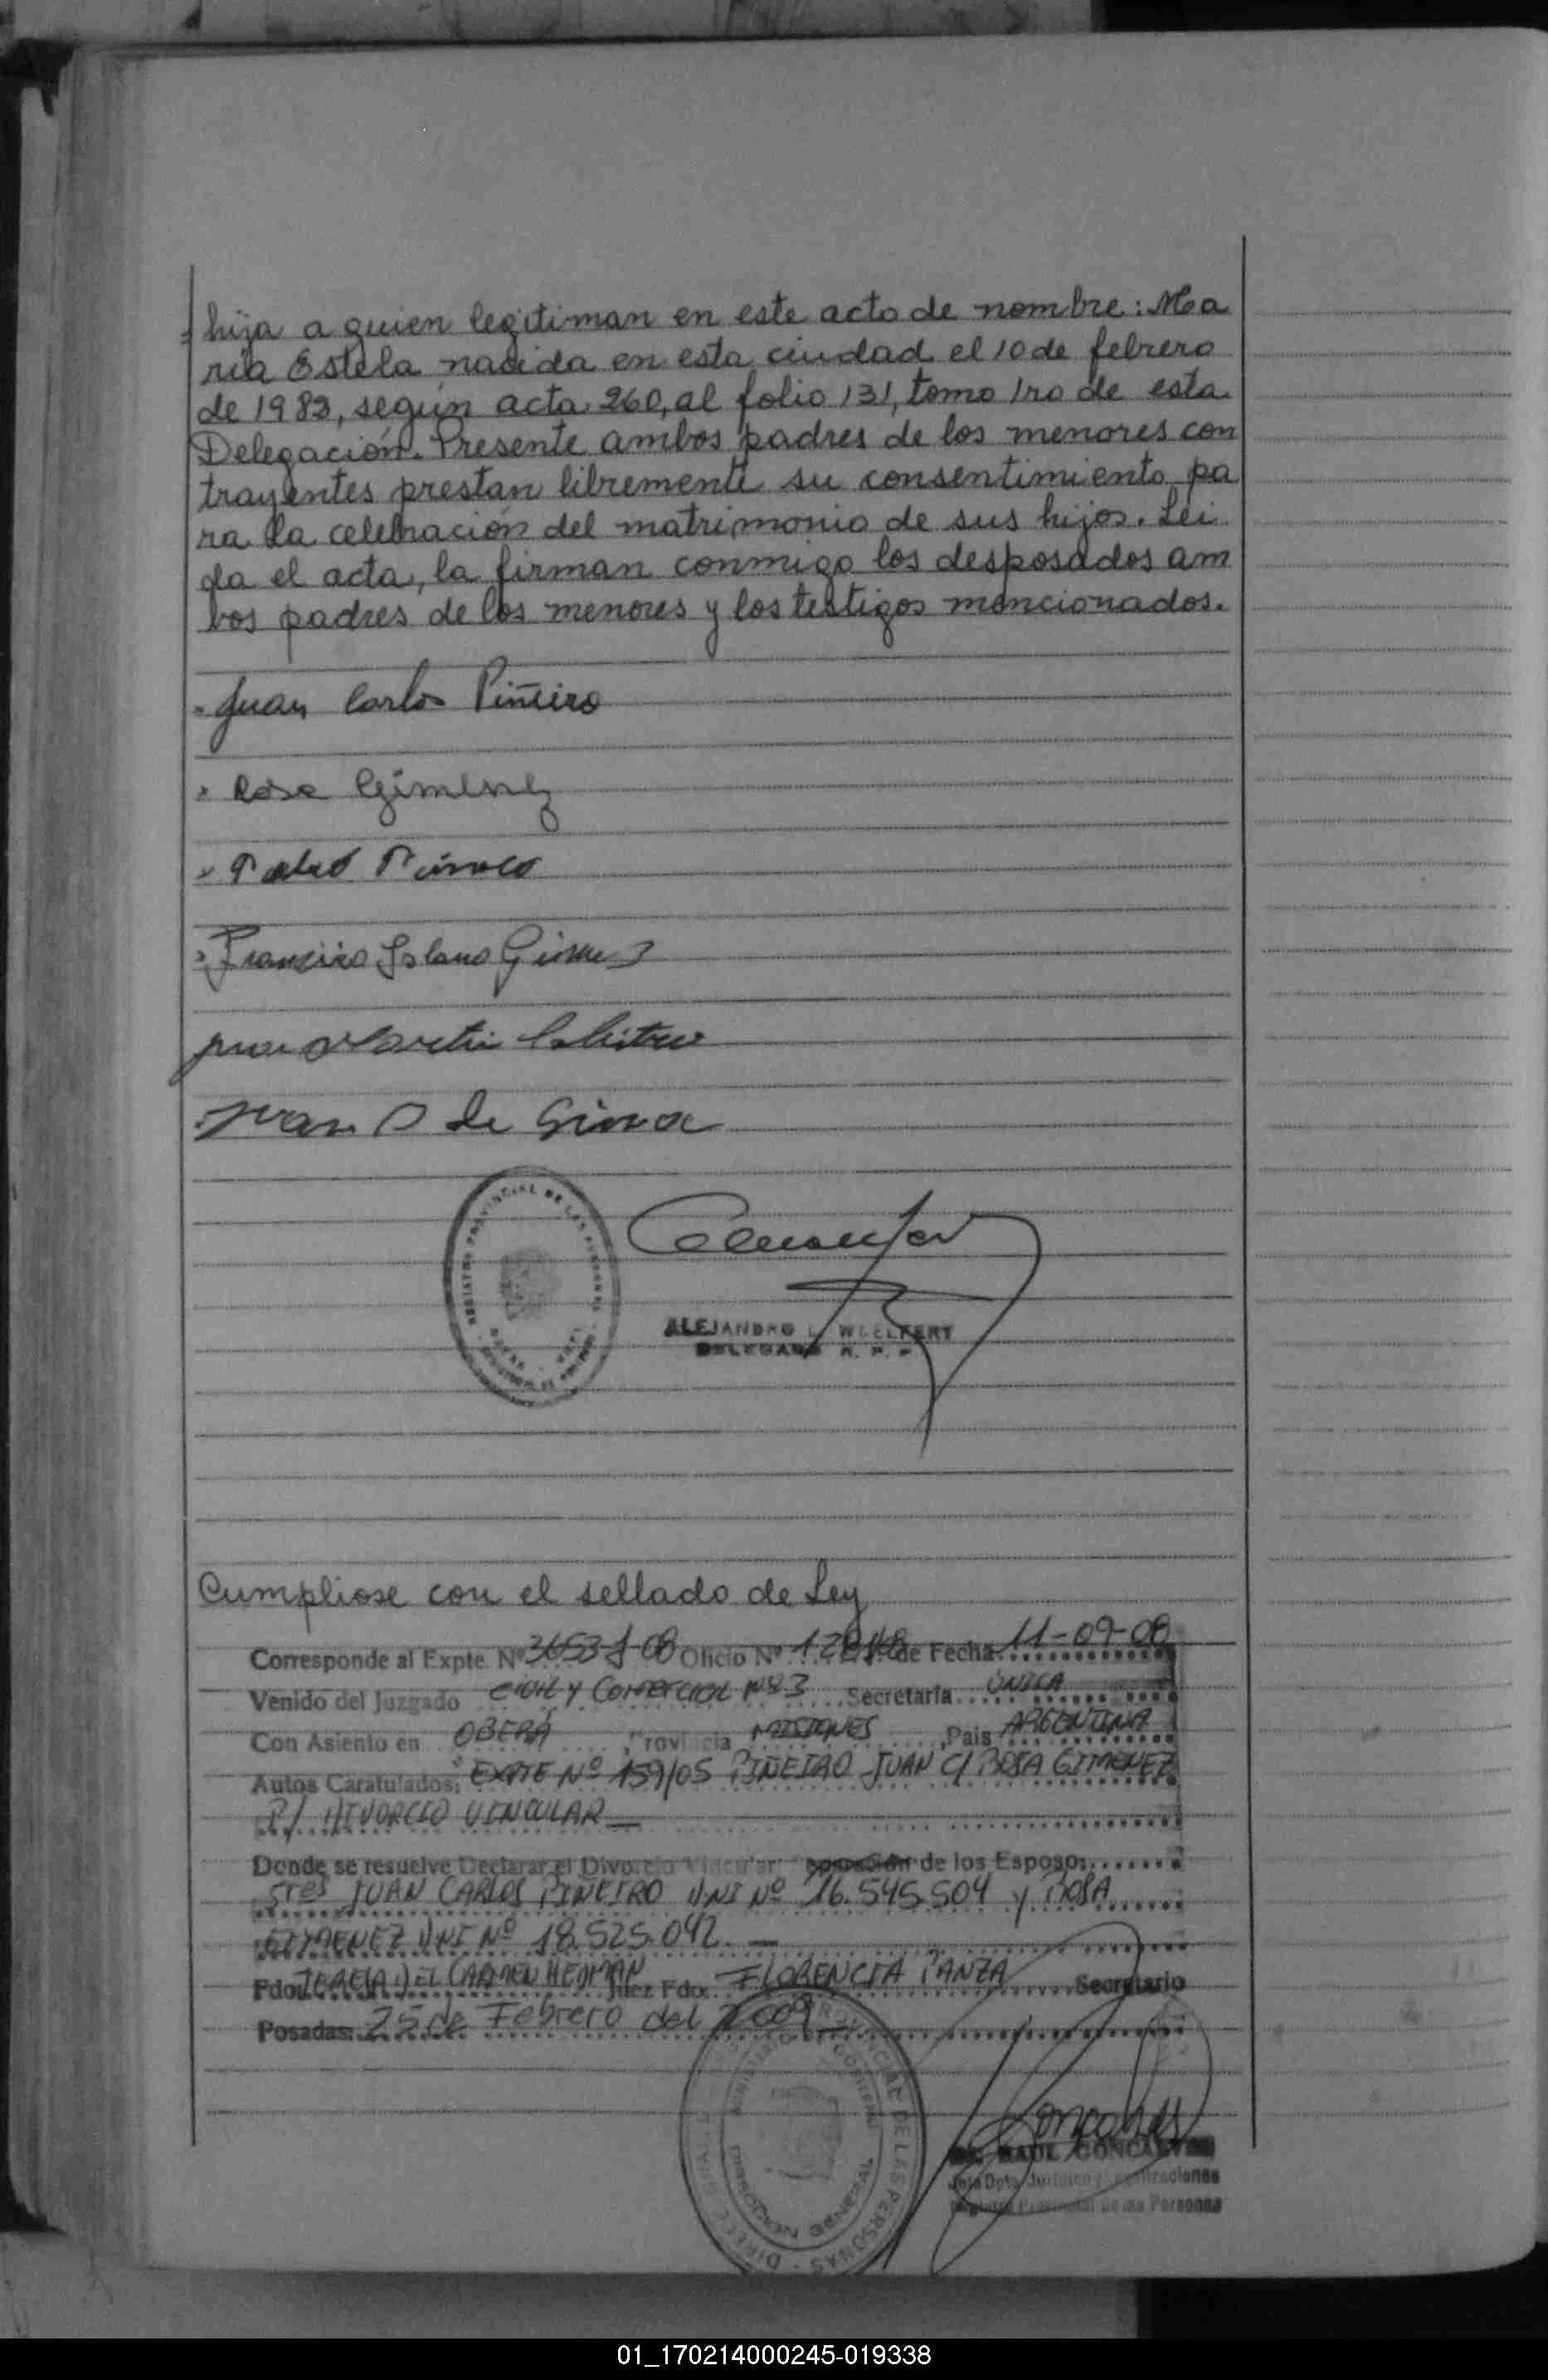 hija a quien legitiman en este acto de nombre: Ma
ria Estela nacida en esta ciudad el 10 de febrero
de 1983, según acta 260, al folio 131, tomo 1ro de esta
Delegación. Presente ambos padres de los menores con
trayentes prestan libremente su consentimiento pa
ra la celebración del matrimonio de sus hijos. Lei
da el acta, la firman conmigo los desposados am
bos padres de los menores y los testigos mencionados.
Juan Carlos Piñeiro
Rosa Gimenez
Francisco Solano Gimenez
Juan Martin
Juan de
REGISTRO PROVINCIAL DE LAS PERSONAS
ALEJANDRO L. WEELFERT
DELEGADO R. P. P.
Cumpliose con el sellado de Ley
Corresponde al Expte. Nº 3653-J-08 Oficio Nº de Fecha 11-09-08
Venido del Juzgado CIVIL Y COMERCIAL Nº 3 Secretaria UNICA
Con Asiento en OBERÁ Provincia MISIONES, Pais ARGENTINA
Autos Caratulados: EXPTE Nº 159/05 PIÑEIRO JUAN C/ ROSA GIMENEZ
P/ DIVORCIO VINCULAR
Donde se resuelve Declarar el Divorcio Vincular separación de los Esposos
Sres JUAN CARLOS PIÑEIRO DNI Nº 16.545.504 y ROSA
GIMENEZ DNI Nº 18.525.042. —
Fdo. TERESA DEL CARMEN HEDMAN Juez Fdo. FLORENCIA PANZA Secretario
Posadas: 25 de Febrero del 2009
PROVINCIAL DE LAS PERSONAS
MINISTERIO DE GOBIERNO
DIRECCION GENERAL
RAUL GONCALVES
Jefe Dpto. Juridico y
Registro Provincial de las Personas
01_170214000245-019338